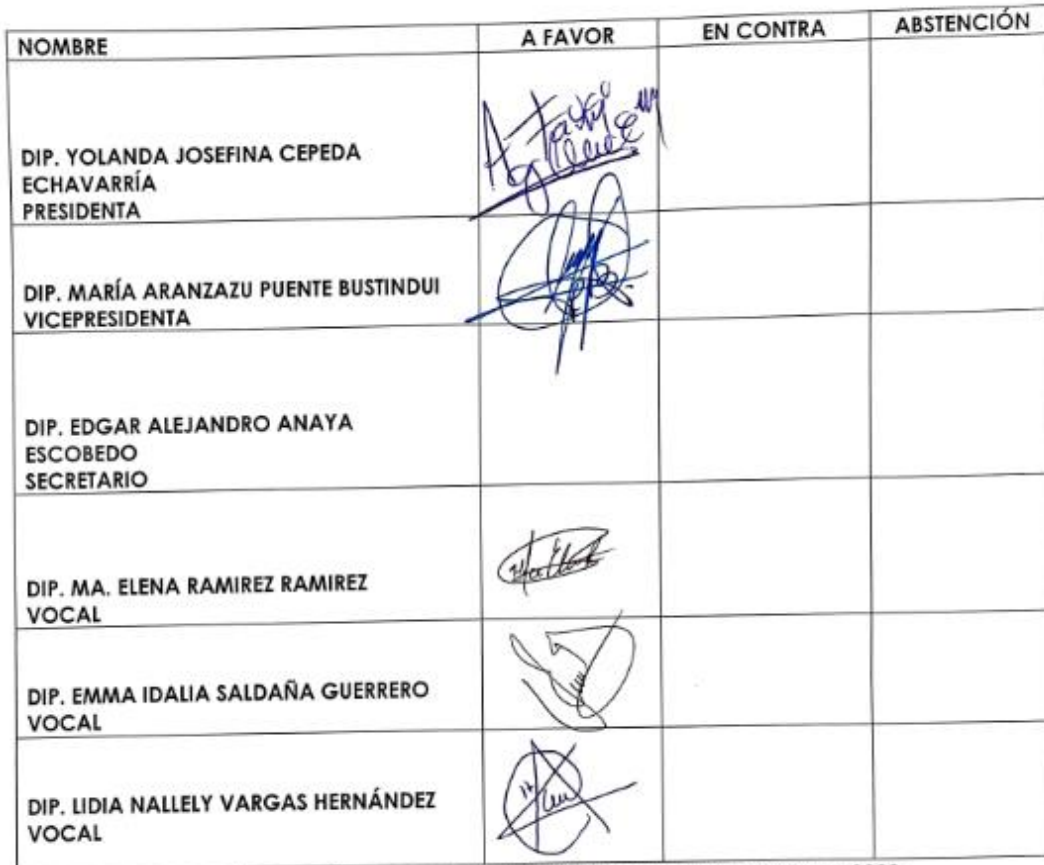 NOMBRE A FAVOR EN CONTRA ABSTENCIÓN
DIP. YOLANDA JOSEFINA CEPEDA
ECHAVARRÍA
PRESIDENTA
DIP. MARÍA ARANZAZU PUENTE BUSTINDUI
VICEPRESIDENTA
DIP. EDGAR ALEJANDRO ANAYA
ESCOBEDO
SECRETARIO
DIP. MA. ELENA RAMIREZ RAMIREZ
VOCAL
DIP. EMMA IDALIA SALDAÑA GUERRERO
VOCAL
DIP. LIDIA NALLELY VARGAS HERNÁNDEZ
VOCAL